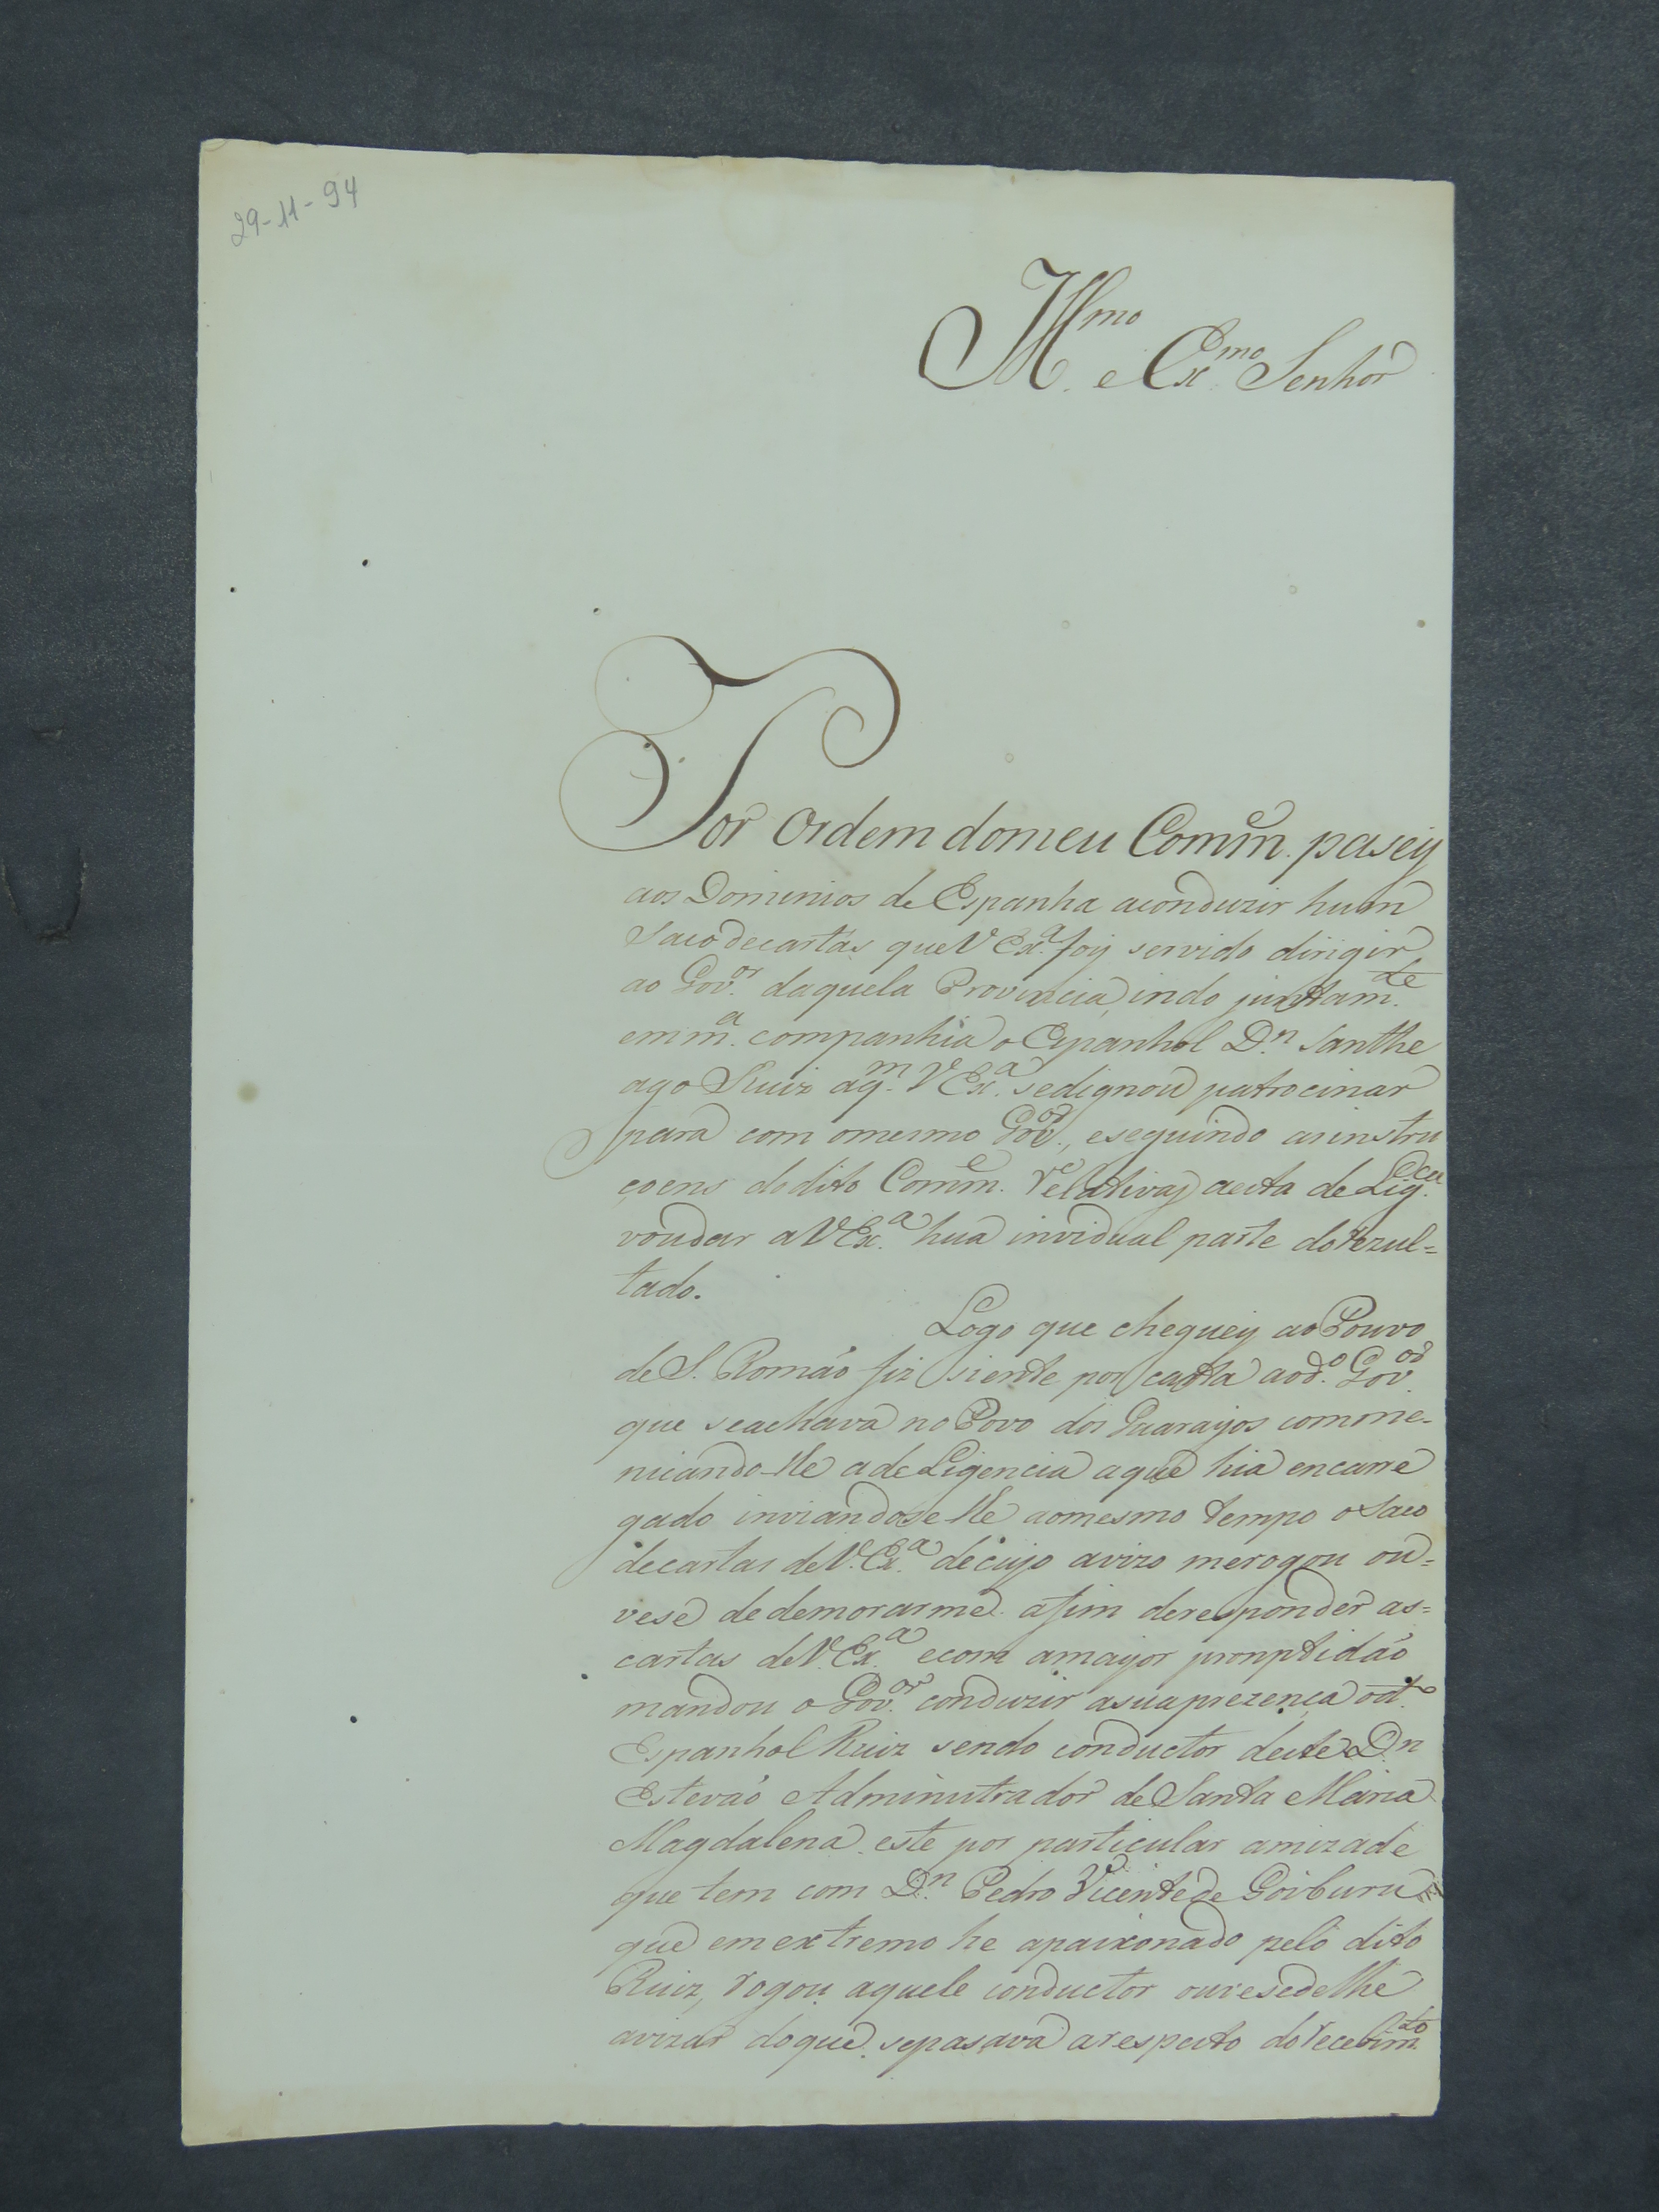 29-11-94
Illmo. e Exmo. Senhor
Por Ordem domeu Comme. pasey
aos Dominios de Espanha aconduzir hum
Saco decartas que V Exa. foy servido dirigir
ao Govor. daquela Provincia, indo juntamte.
emma. companhia o Espanhol Dn. Santhe
ago Ruiz aqm. V Exa. sedignou patrocinar
para com omesmo Govor., eseguindo asinstru
çoens dodito Comme. relativas aesta deLigca.
voudar aVExa. hua invidual parte dorezul=
tado.
Logo que cheguey ao Pouvo
de S. Romão fiz siente por carta aodo. Govor.
que seachava no Povo dos Guarayos comme-
nicando-lle adeLigencia aque hia encarre
gado inviandose-lle aomesmo tempo oSaco
decartas deV.Exa. decujo avizo merogou ou=
vese dedemorarme afim deresponder as=
cartas deV.Exa. ecom amayor pronptidão
mandou o Govor. conduzir asuaprezença odto.
Espanhol Ruiz sendo conductor deste Dn
Estevão Administrador de Santa Maria
Magdalena este por particular amizade
que tem com Dn. Pedro Vicente de Goiburu
que emextremo he apaixonado pelo dito
Ruiz, rogou aquele conductor ouvesedelhe
avizar doque sepasava arespeito dorecebimto.